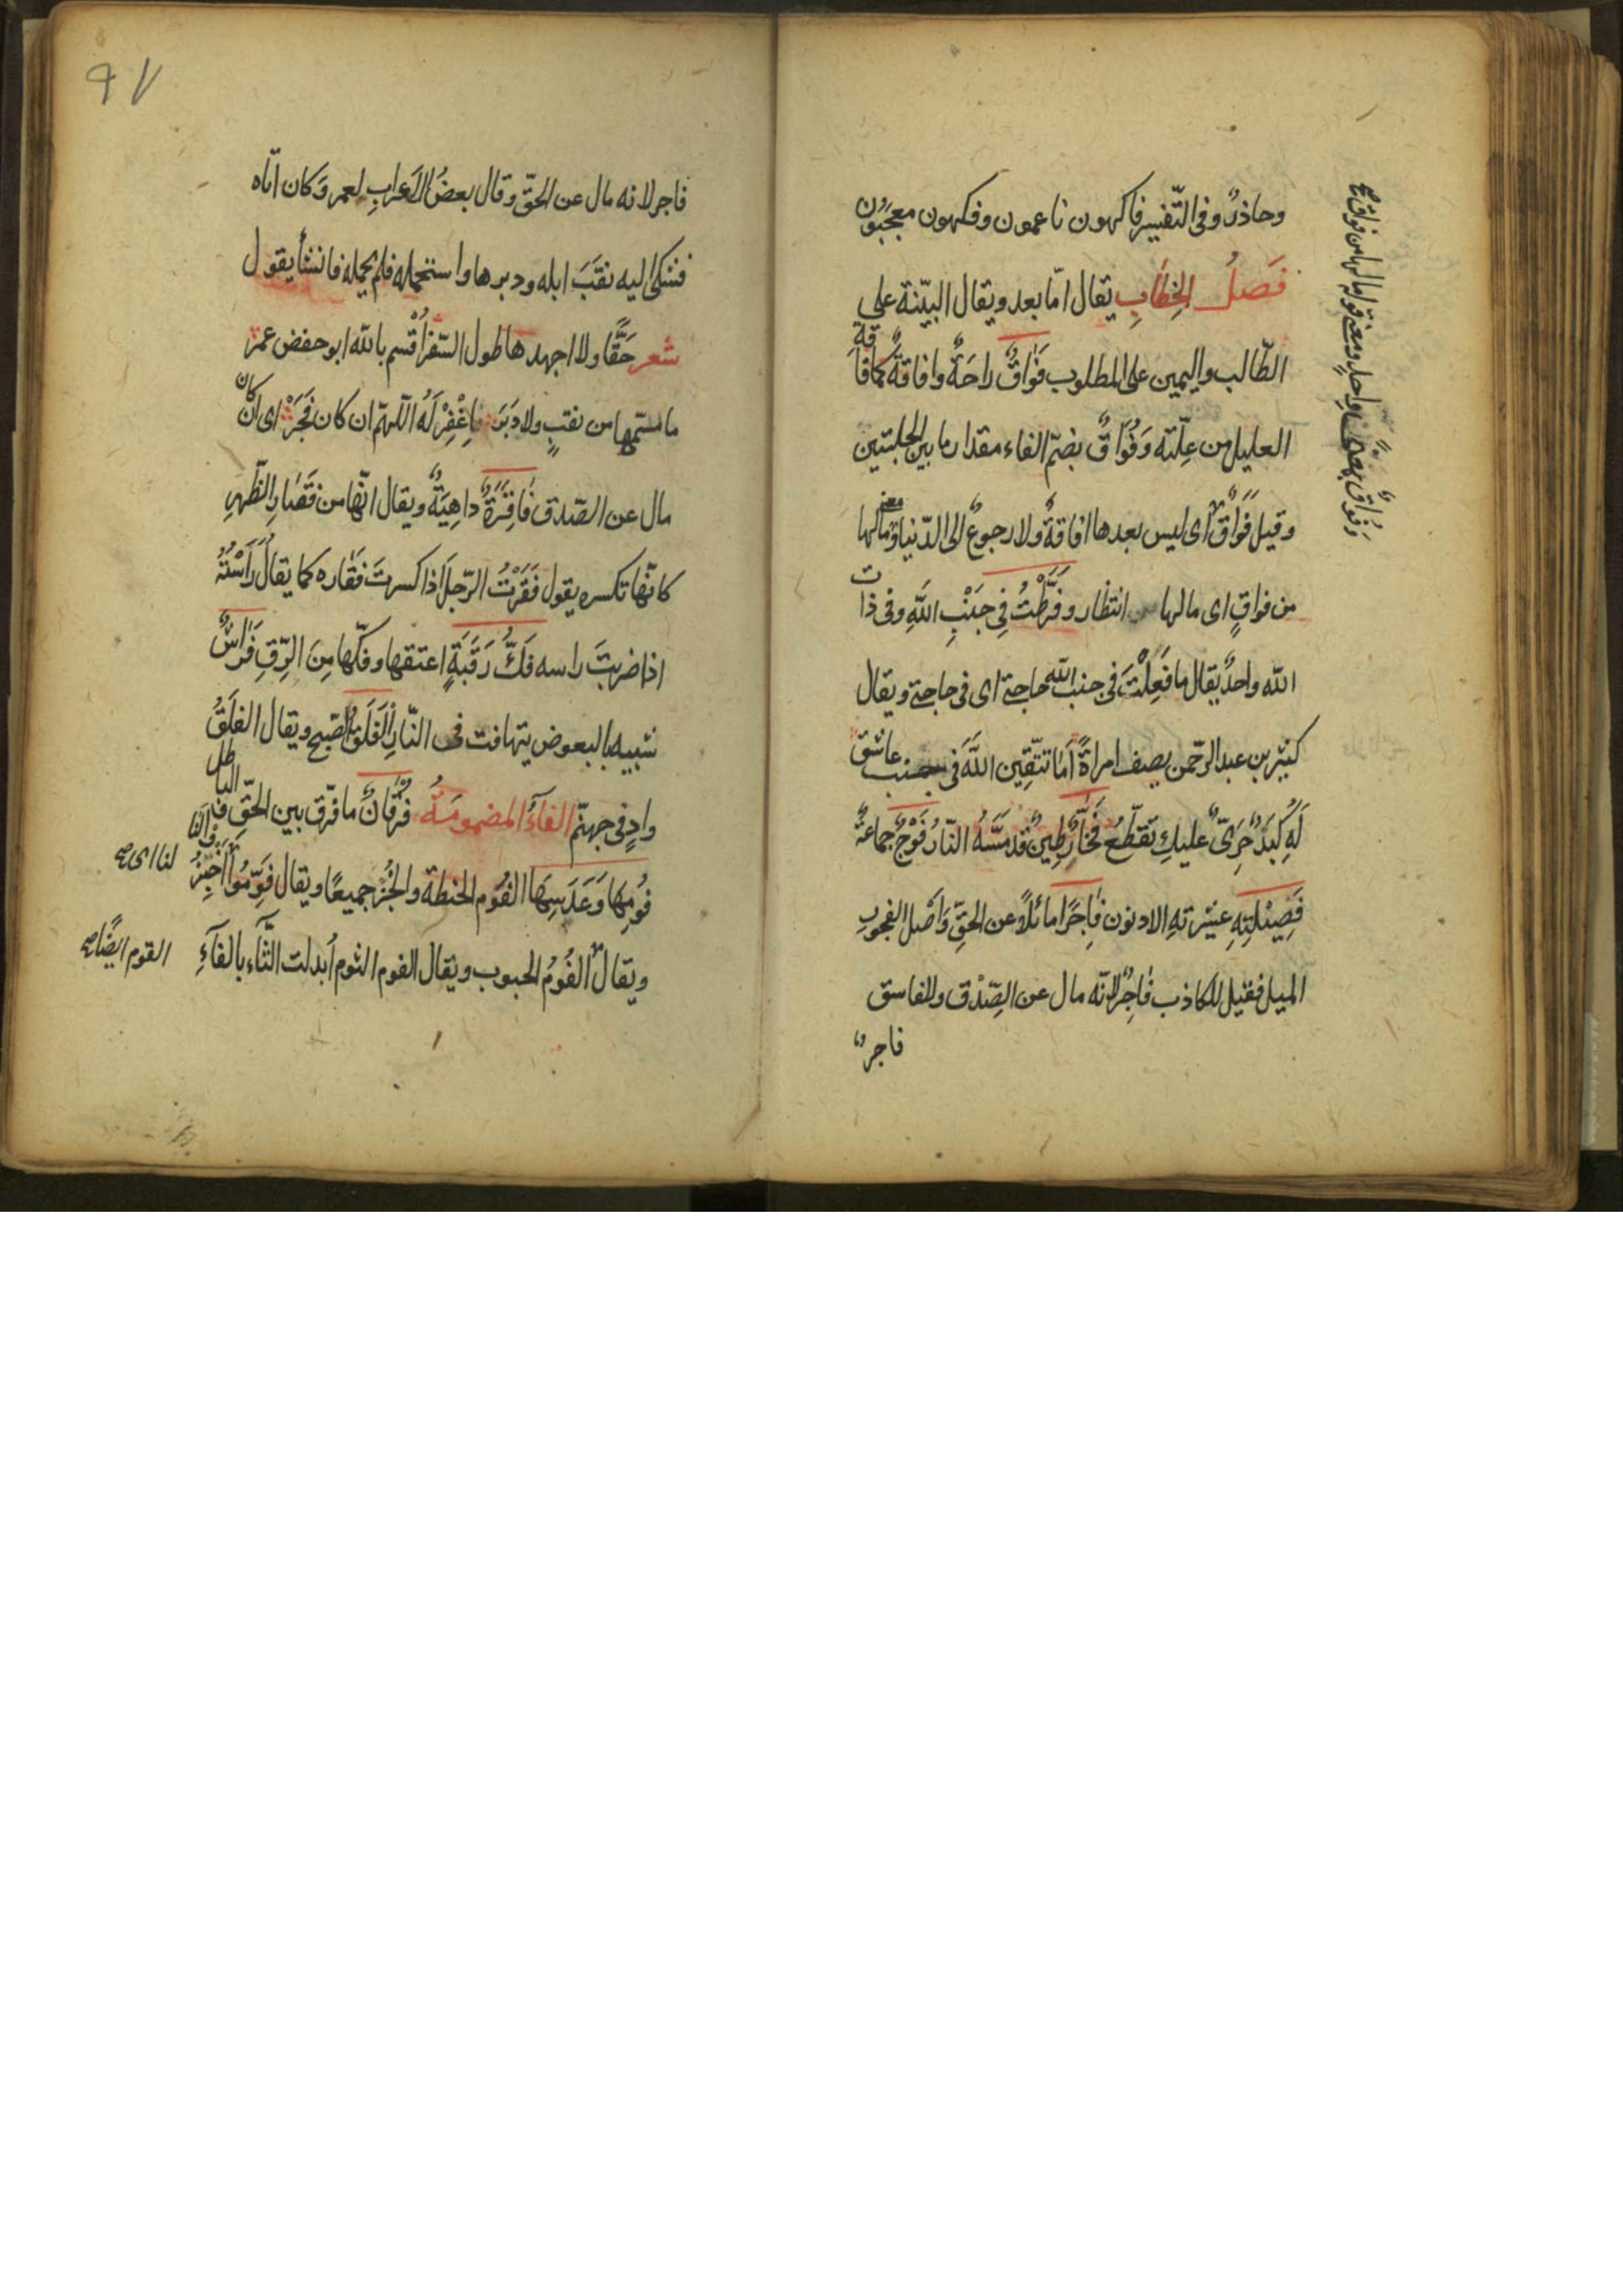 وحاذرٌ وفی التّفسیر فاکهون ناعمون وفکهون معجَبُون
فَصلُ الخِطَابِ یقال امّا بعد ویقال البیّنة علی
الطّالب والیمین علی المطلوب فَوَاقٌ راحَةٌ وافاقةٌ کافاقة
العلیل من علّته وَفُوَاقٌ بضمّ الفاء مقدار ما بین الحلبتین
وقیل فَوَاقٌ ای لیس بعدها افاقةٌ ولا رجوعٌ الی الدّنیا ومعنی مالها
من فواقٍ ای مالها انتظار وفَرَّطْتُ فِی جَنْبِ اللّهِ وفی ذات
اللّه واحدٌ یقال ما فَعِلْتَ فی جنب اللّه حاجتی ای فی حاجتی ویقال
کثیّر بن عبد الرّحمن یصف امراةً أمَا تتّقِین اللّهَ فی جنب عاشق
لَهِ کَبَدٌ حَرَیّ علیكِ تَقَطّعُ فَخَّارٌ طِینٌ قد مَسَّهُ النّارُ فَوْجٌ جماعةٌ
فَصِیْلَتِهِ عشیرتهِ الادنون فَاجِرًا مائلًا عن الحقِّ وَاصْل الفجورِ
المیل فقیل للکاذب فَاجِرٌ لانّه مال عن الصّدْق وللفاسق
فاجرٌ
وفُوَاقٌ بمعنًی واحدٍ ومعنی قوله مالها من فواق صح
٩٧
فاجر لانه مال عن الحقّ وقال بعضُ الاعرابِ لعمر وَکان اتاه
فشکی الیه نقَبَ ابله ودبرها واستحمله فلم یحمله فانشأ یقول
شعر حَقًّا ولا اجهدها طول السّفر اُقْسم باللّه ابو حفض عمر
ما مسّها من نقبٍ ولا دَبَر فاغْفِرْ لَهُ اللّهمّ ان کان فَجَرْ ای ان کان
مال عن الصّدق فَاقِرَةٌ دَاهِیَةٌ ویقال انّها من فَقَار الظّهرِ
کانّها تکسره یقول فَقَرْتُ الرّجلَ اذا کسرتَ فقاره کما یقال رَأسْتُهُ
اذا ضربتَ راسه فَكُّ رَقَبَةٍ اعتقها وفکّها مِنَ الرِّقِ فَرَاشٌ
شبیه بالبعوض یتهافت فی النّارِ الْفَلَقُ الصّبح ویقال الفلَقُ
وادٍ فی جهنّم الفآءُ المضمومَةُ فُرْقَانٌ ما فرّق بین الحَقِّ والباطل
فُومِهَا وَعَدَسِهَا الفُوم الحنطة والخُبْز جمیعًا ویقال فَوِّمُوا لنا ای اخْبِزُوا لنا
لنا ای صح
ویقال الفُومُ الحبوب ویقال الفوم الثوم اُبدلت الثّآء بالفآءِ
الفوم ایضًا صح